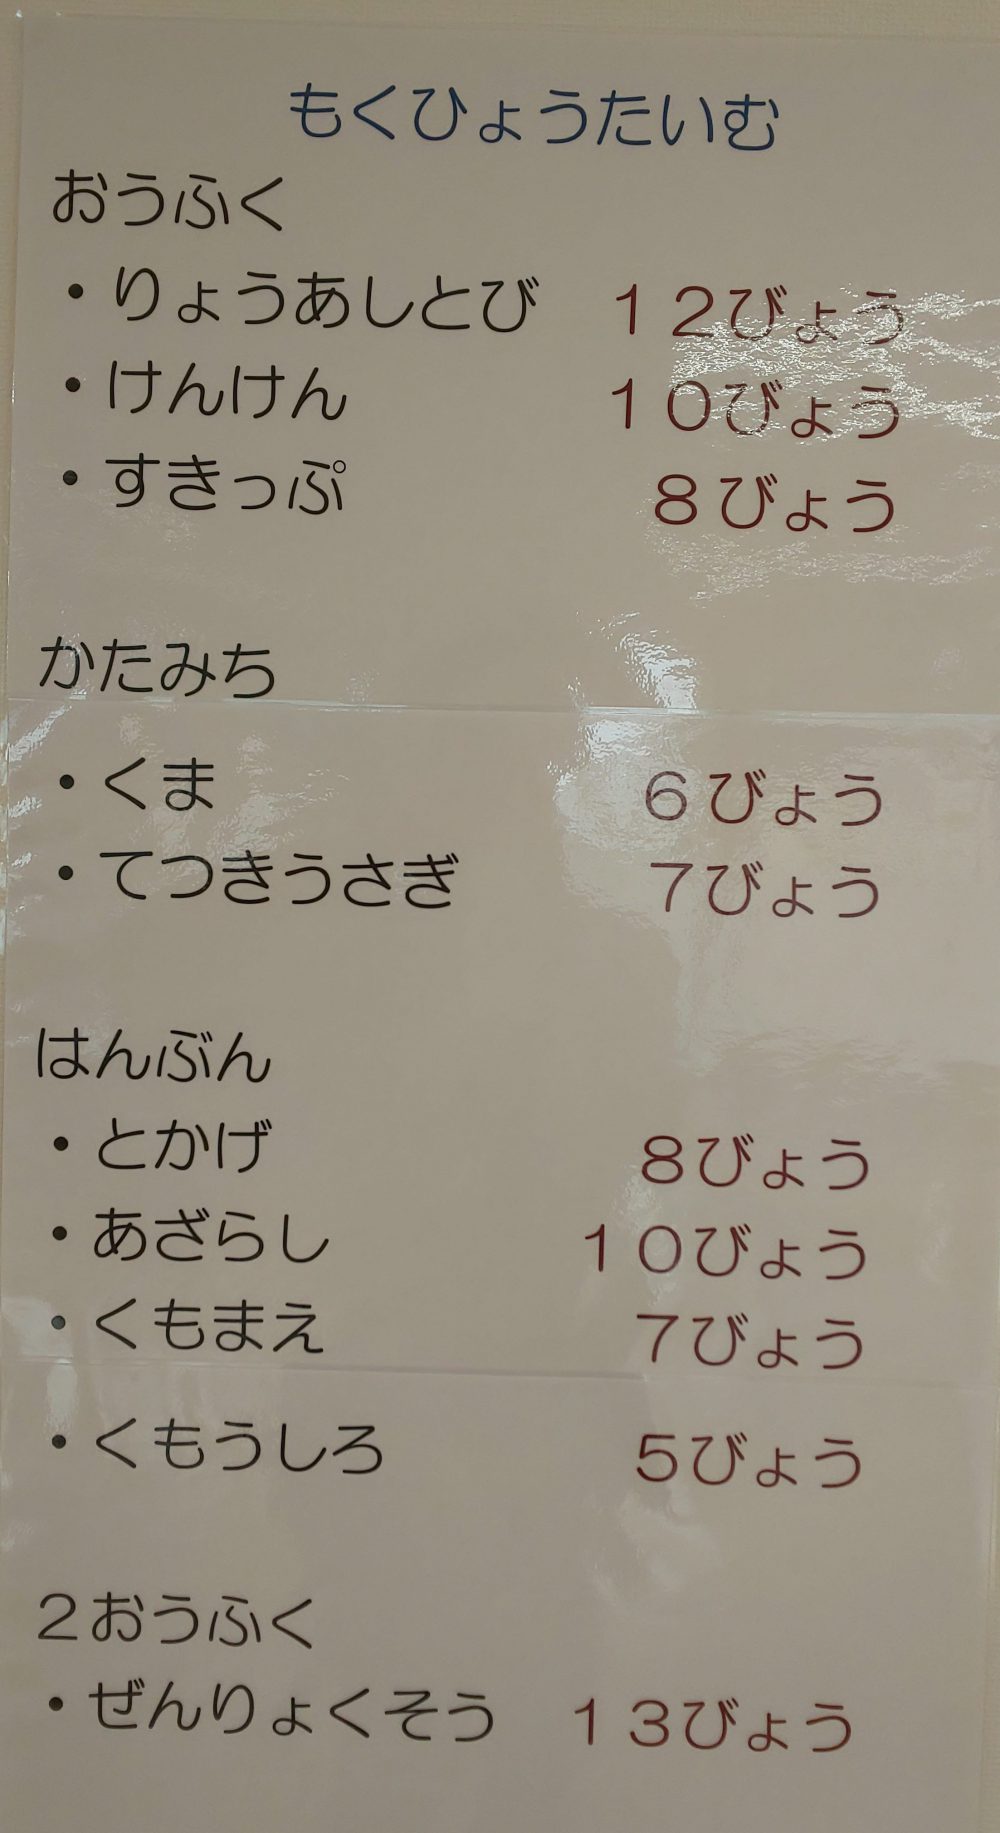 もくひょうたいむ
おうふく
・りょうあしとび　１２びょう
・けんけん　１０びょう
・すきっぷ　８びょう
かたみち
・くま　６びょう
・てつきうさぎ　７びょう
はんぶん
・とかげ　８びょう
・あざらし　１０びょう
・くもまえ　７びょう
・くもうしろ　５びょう
２おうふく
・ぜんりょくそう　１３びょう